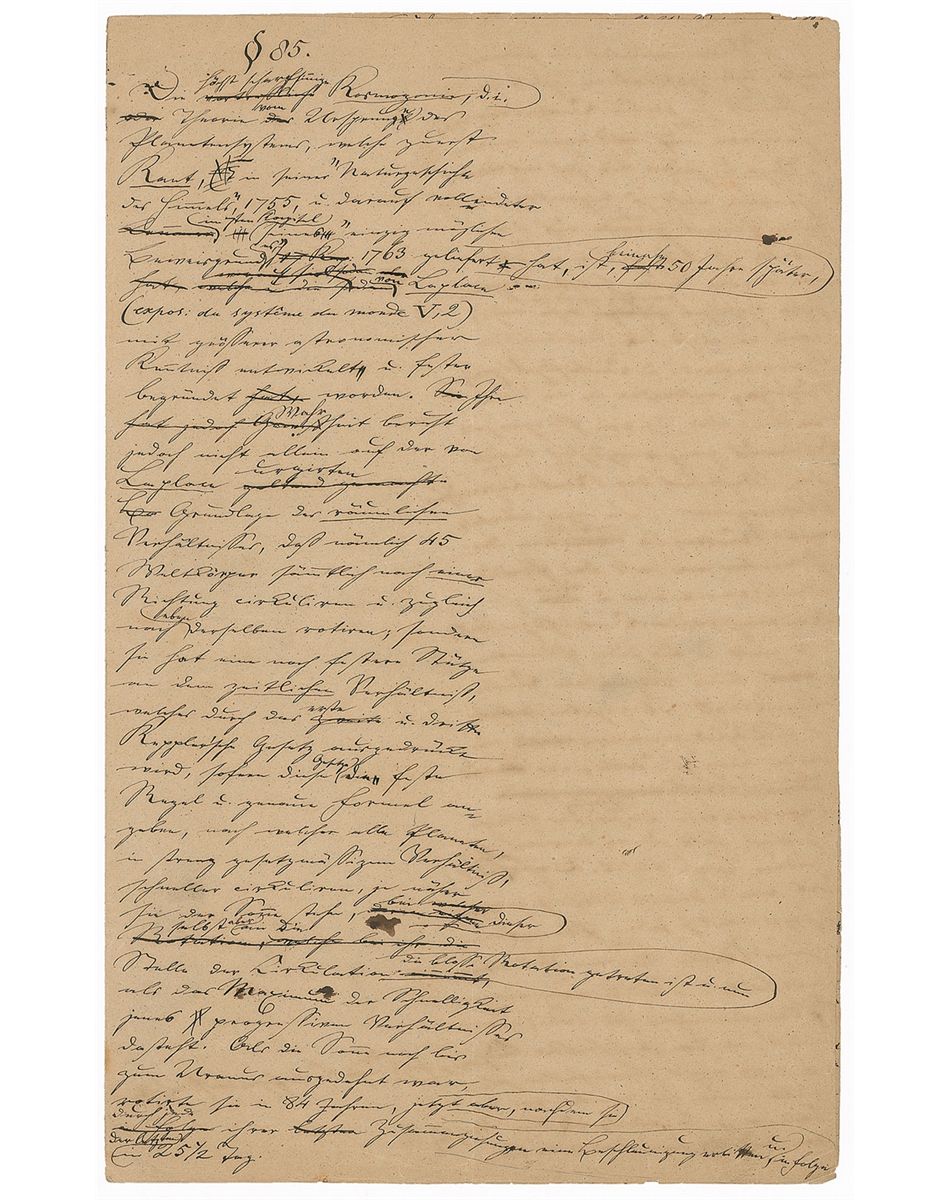 § 85.
Die höchst scharfsinnige Kosmogonie, d. i.
Theorie vom Ursprung des
Planetensystems, welche zuerst
Kant, in seiner "Naturgeschichte
des Himmels", 1755, u. darauf vollendeter
im 7ten Kapitel seines "einzig möglichen
Beweisgrundes" 1763 geliefert hat, ist, beinahe 50 Jahre später,
von Laplace
(expos: du système du monde V, 2)
mit größerer astronomischer
Kenntniß entwickelt u. fester
begründet worden. Ihre
Wahrheit beruht
jedoch nicht allein auf der von
Laplace urgirten
Grundlage des räumlichen
Verhältnisses, daß nämlich 45
Weltkörper sämmtlich nach einer
Richtung cirkuliren u. zugleich
nach eben derselben rotiren; sondern
sie hat eine noch festere Stütze
an dem zeitlichen Verhältniß,
welches durch das erste u. dritte
Keppler'sche Gesetz ausgedrückt
wird, sofern diese Gesetze die feste
Regel u. genaue Formel an-
geben, nach welcher alle Planeten,
in streng gesetzmäßigem Verhältniß,
schneller cirkuliren, je näher
sie der Sonne stehn, bei dieser
selbst aber an die
Stelle der Cirkulation die bloße Rotation getreten ist u. nun
als das Maximum der Schnelligkeit
jenes progressiven Verhältnisses
dasteht. Als die Sonne noch bis
zum Uranus ausgedehnt war,
rotirte sie in 84 Jahren, jetzt aber, nachdem sie
durch jede ihrer Zusammenziehungen eine Beschleunigung erlitten, u. in Folge
der letzten in 25 1/2 Tag.